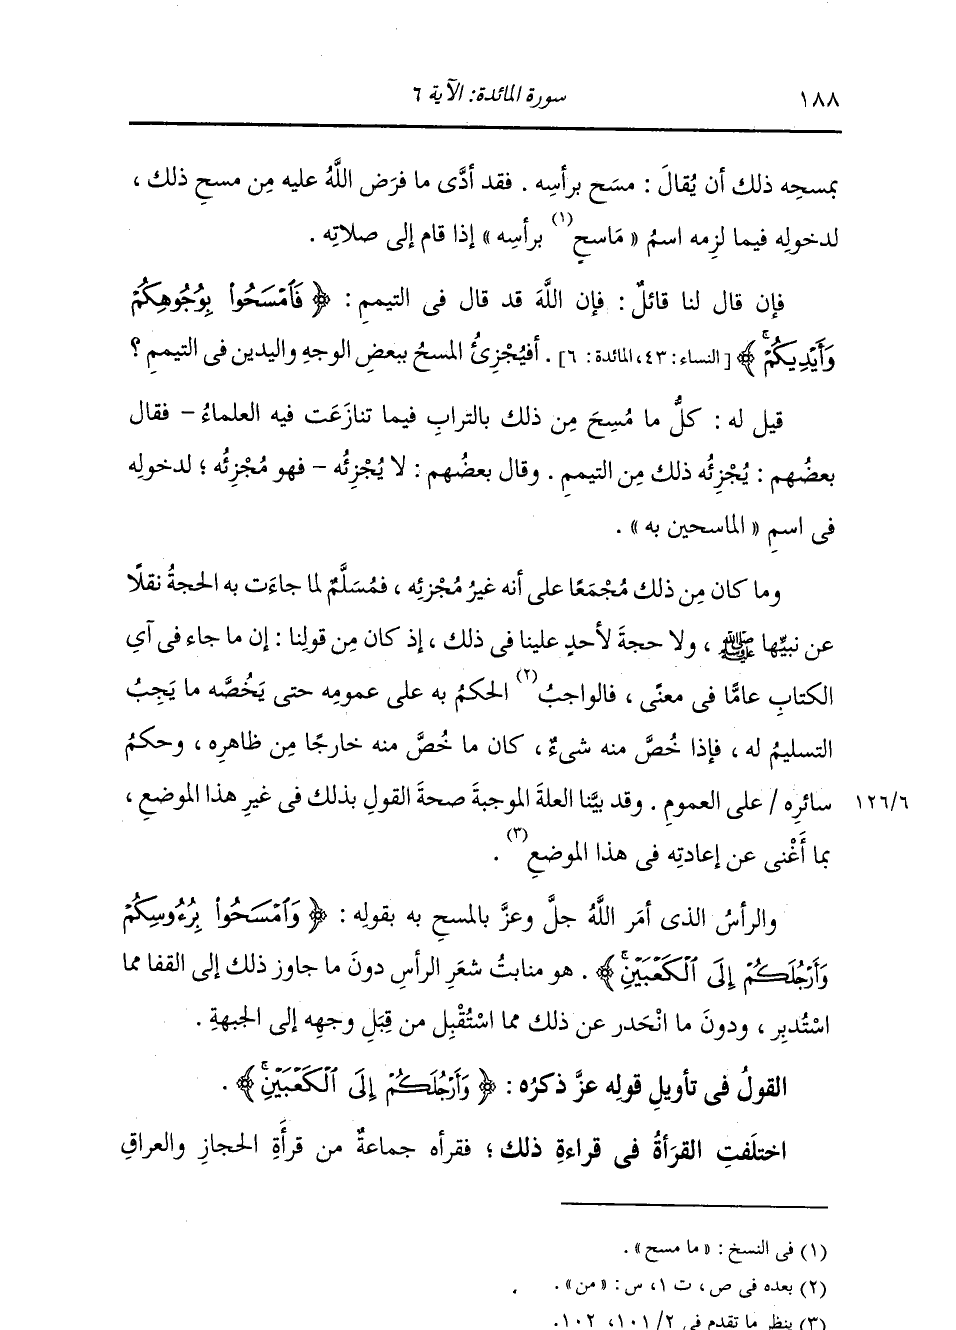 ١٨٨ سورة المائدة: الآية ٦
بمسحِه ذلك أن يُقالَ : مسَح برأسِه . فقد أدَّى ما فرَض اللَّهُ عليه مِن مسحِ ذلك ،
لدخولِه فيما لزِمه اسمُ « مَاسحٍ(١) برأسِه » إذا قام إلى صلاتِه .
فإن قال لنا قائلٌ : فإن اللَّهَ قد قال فى التيممِ : ﴿ فَٱمْسَحُوا۟ بِوُجُوهِكُمْ
وَأَيْدِيكُمْ ۚ ﴾ [ النساء : ٤٣، المائدة : ٦] . أفيُجْزِئُ المسحُ ببعضِ الوجهِ واليدين فى التيممِ ؟
قيل له : كلُّ ما مُسِحَ مِن ذلك بالترابِ فيما تنازَعَت فيه العلماءُ – فقال
بعضُهم : يُجْزِئُه ذلك مِن التيممِ . وقال بعضُهم : لا يُجْزِئُه – فهو مُجْزِئُه ؛ لدخولِه
فى اسمِ « الماسحين به » .
وما كان مِن ذلك مُجْمَعًا على أنه غيرُ مُجْزِئِه ، فمُسَلَّمٌ لما جاءَت به الحجةُ نقلًا
عن نبيِّها ﷺ ، ولا حجةَ لأحدٍ علينا فى ذلك ، إذ كان مِن قولِنا : إن ما جاء فى آىِ
الكتابِ عامًّا فى معنًى ، فالواجبُ(٢) الحكمُ به على عمومِه حتى يَخُصَّه ما يَجِبُ
التسليمُ له ، فإذا خُصَّ منه شىءٌ ، كان ما خُصَّ منه خارجًا مِن ظاهرِه ، وحكمُ
١٢٦/٦ سائرِه / على العمومِ . وقد بيَّنا العلةَ الموجبةَ صحةَ القولِ بذلك فى غيرِ هذا الموضعِ ،
بما أَغْنى عن إعادتِه فى هذا الموضعِ(٣) .
والرأسُ الذى أمَر اللَّهُ جلَّ وعزَّ بالمسحِ به بقولِه : ﴿ وَٱمْسَحُوا۟ بِرُءُوسِكُمْ
وَأَرْجُلَكُمْ إِلَى ٱلْكَعْبَيْنِ ۚ ﴾ . هو منابتُ شعَرِ الرأسِ دونَ ما جاوز ذلك إلى القفا مما
اسْتُدبِر ، ودونَ ما انْحَدر عن ذلك مما اسْتُقْبِل من قِبَلِ وجهِه إلى الجبهةِ .
القولُ فى تأويلِ قولِه عزَّ ذكرُه : ﴿ وَأَرْجُلَكُمْ إِلَى ٱلْكَعْبَيْنِ ۚ ﴾ .
اختلَفتِ القرَأةُ فى قراءةِ ذلك ؛ فقرأه جماعةٌ من قرأَةِ الحجازِ والعراقِ
(١) فى النسخ : « ما مسح » .
(٢) بعده فى ص ، ت ١، س : « من » .
(٣) ينظر ما تقدم فى ٢/ ١٠١، ١٠٢.